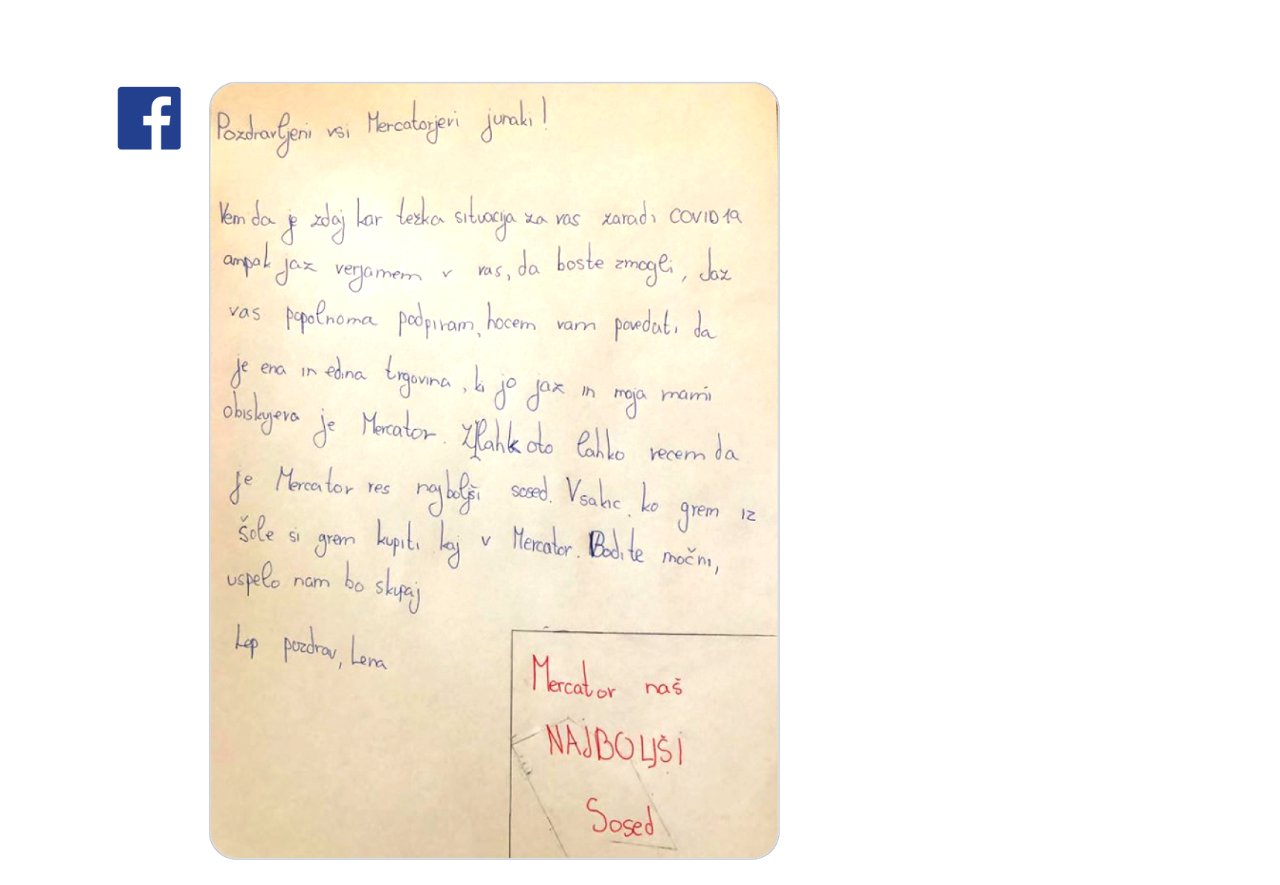 Pozdravljeni vsi Mercatorjevi junaki!
Vem da je zdaj kar težka situacija za vas zaradi COVID 19
ampak jaz verjamem v vas, da boste zmogli, Jaz
vas popolnoma podpiram, hocem vam povedati da
je ena in edina trgovina, ki jo jaz in moja mami
obiskujeva je Mercator. Zlahkoto lahko recem da
je Mercator res najboljši sosed. Vsakic, ko grem iz
šole si grem kupiti kaj v Mercator. Bodite močni,
uspelo nam bo skupaj
Lep pozdrav, Lena
Mercator naš
NAJBOLJŠI
Sosed